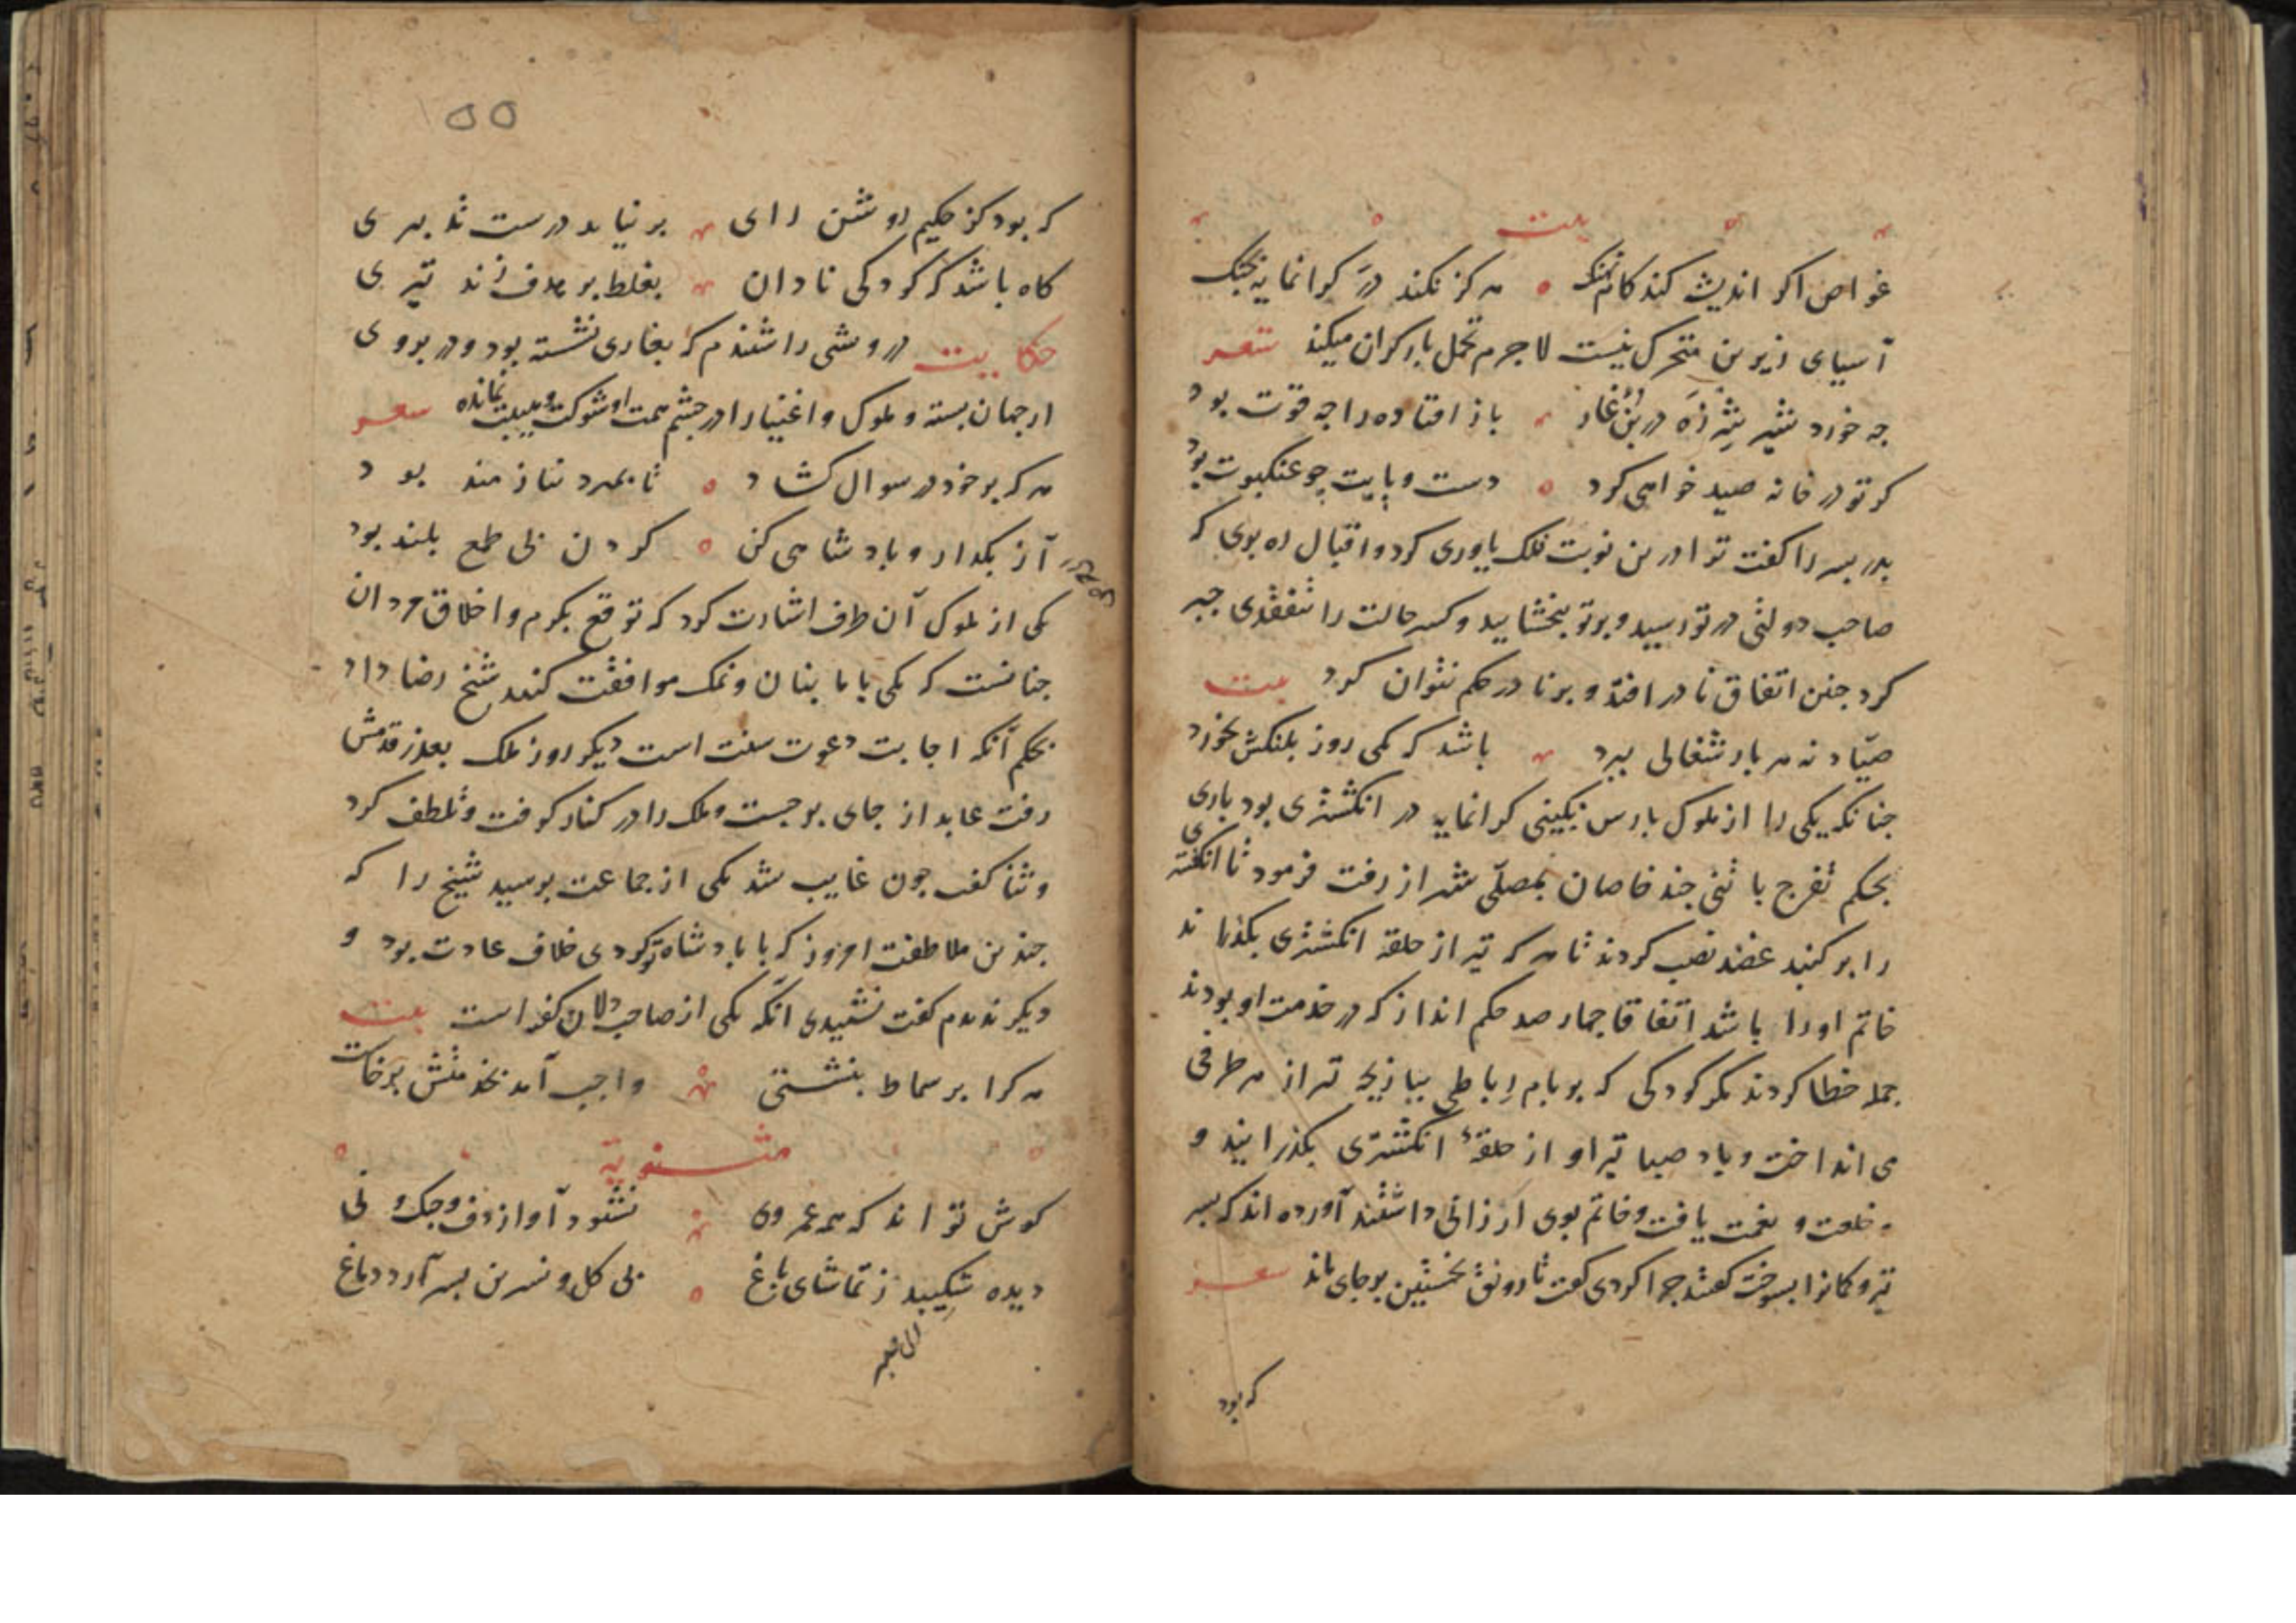 بیت
غواص اگر اندیشه کند کام نهنگ هرگز نکند در گرانمایه بجنک
آسیای زیرین متحرک نیست لاجرم تحمل بار کران میکند شعر
جه خورد شیر شرزه در بن غار باز افتاده را جه قوت بود
کر تو در خانه صید خواهی کرد دست و پایت چو عنکبوت بود
بدر بسر را کفت ترا درین نوبت فلک یاوری کرد و اقبال ره بوی که
صاحب دولتی در تو رسید و بر تو ببخشایید و کسر حالت را بتفقدی جبر
کرد جنین اتفاق نادر افتد و بر نادر حکم نتوان کرد بیت
صیاد نه هر بار شغالی ببرد باشد که یکی روز بلنکش بخورد
جنانکه یکی را از ملوک بارس نکینی کرانمایه در انکشتری بود باری
بحکم تفرج با تنی جند خاصان بمصلی شیراز رفت فرمود تا انکشتری
را بر کنبد عضد نصب کردند تا هر که تیر از حلقه انکشتری بکذراند
خاتم او را باشد اتفاقا جهار صد حکم انداز که در خدمت او بودند
جمله خطا کردند مکر کودکی که بر بام رباطی ببازیجه تیر از هر طرفی
می انداخت و باد صبا تیر او از حلقهٔ انکشتری بکذرانید و
خلعت و نعمت یافت و خاتم بوی ارزانی داشتند آورده اند که بسر
تیر و کمانرا بسوخت کفتند جرا کردی کفت تا رونق نخستین بر جای ماند شعر
که بود
۵۵
که بود کز حکیم روشن رای بر نیاید درست تدبیری
کاه باشد که کودکی نادان بغلط بر هدف زند تیری
حکایت درویشی را شنیدم که بغاری نشسته بود و در بروی
از جهان بسته و ملوک و اغنیا را در جشم همت او شوکت و هیبت نمانده شعر
هر که بر خود در سوال کشاد تا بمیرد نیازمند بود
آز بکذار و بادشاهی کن کردن بی طمع بلند بود
یکی از ملوک آن طرف اشارت کرد که توقع بکرم و اخلاق مردان
جنانست که یکی با ما بنان و نمک موافقت کنند شیخ رضا داد
بحکم آنکه اجابت دعوت سنت است دیکر روز ملک بعذر قدمش
رفت عابد از جای برجست و ملک را در کنار کرفت و تلطف کرد
و ثنا کفت جون غایب شد یکی از جماعت برسید شیخ را که
جندین ملاطفت امروز که با بادشاه تو کردی خلاف عادت بود و
دیکر ندیدم کفت نشنیدی آنکه یکی از صاحب دلان کفته است بیت
هر کرا بر سماط بنشستی واجب آمد بخدمتش برخاست
مثنویه
کوش تواند که همه عمر وی نشنود آواز دف و جنک و نی
دیده شکیبد ز تماشای باغ بی کل و نسرین بسر آرد دماغ